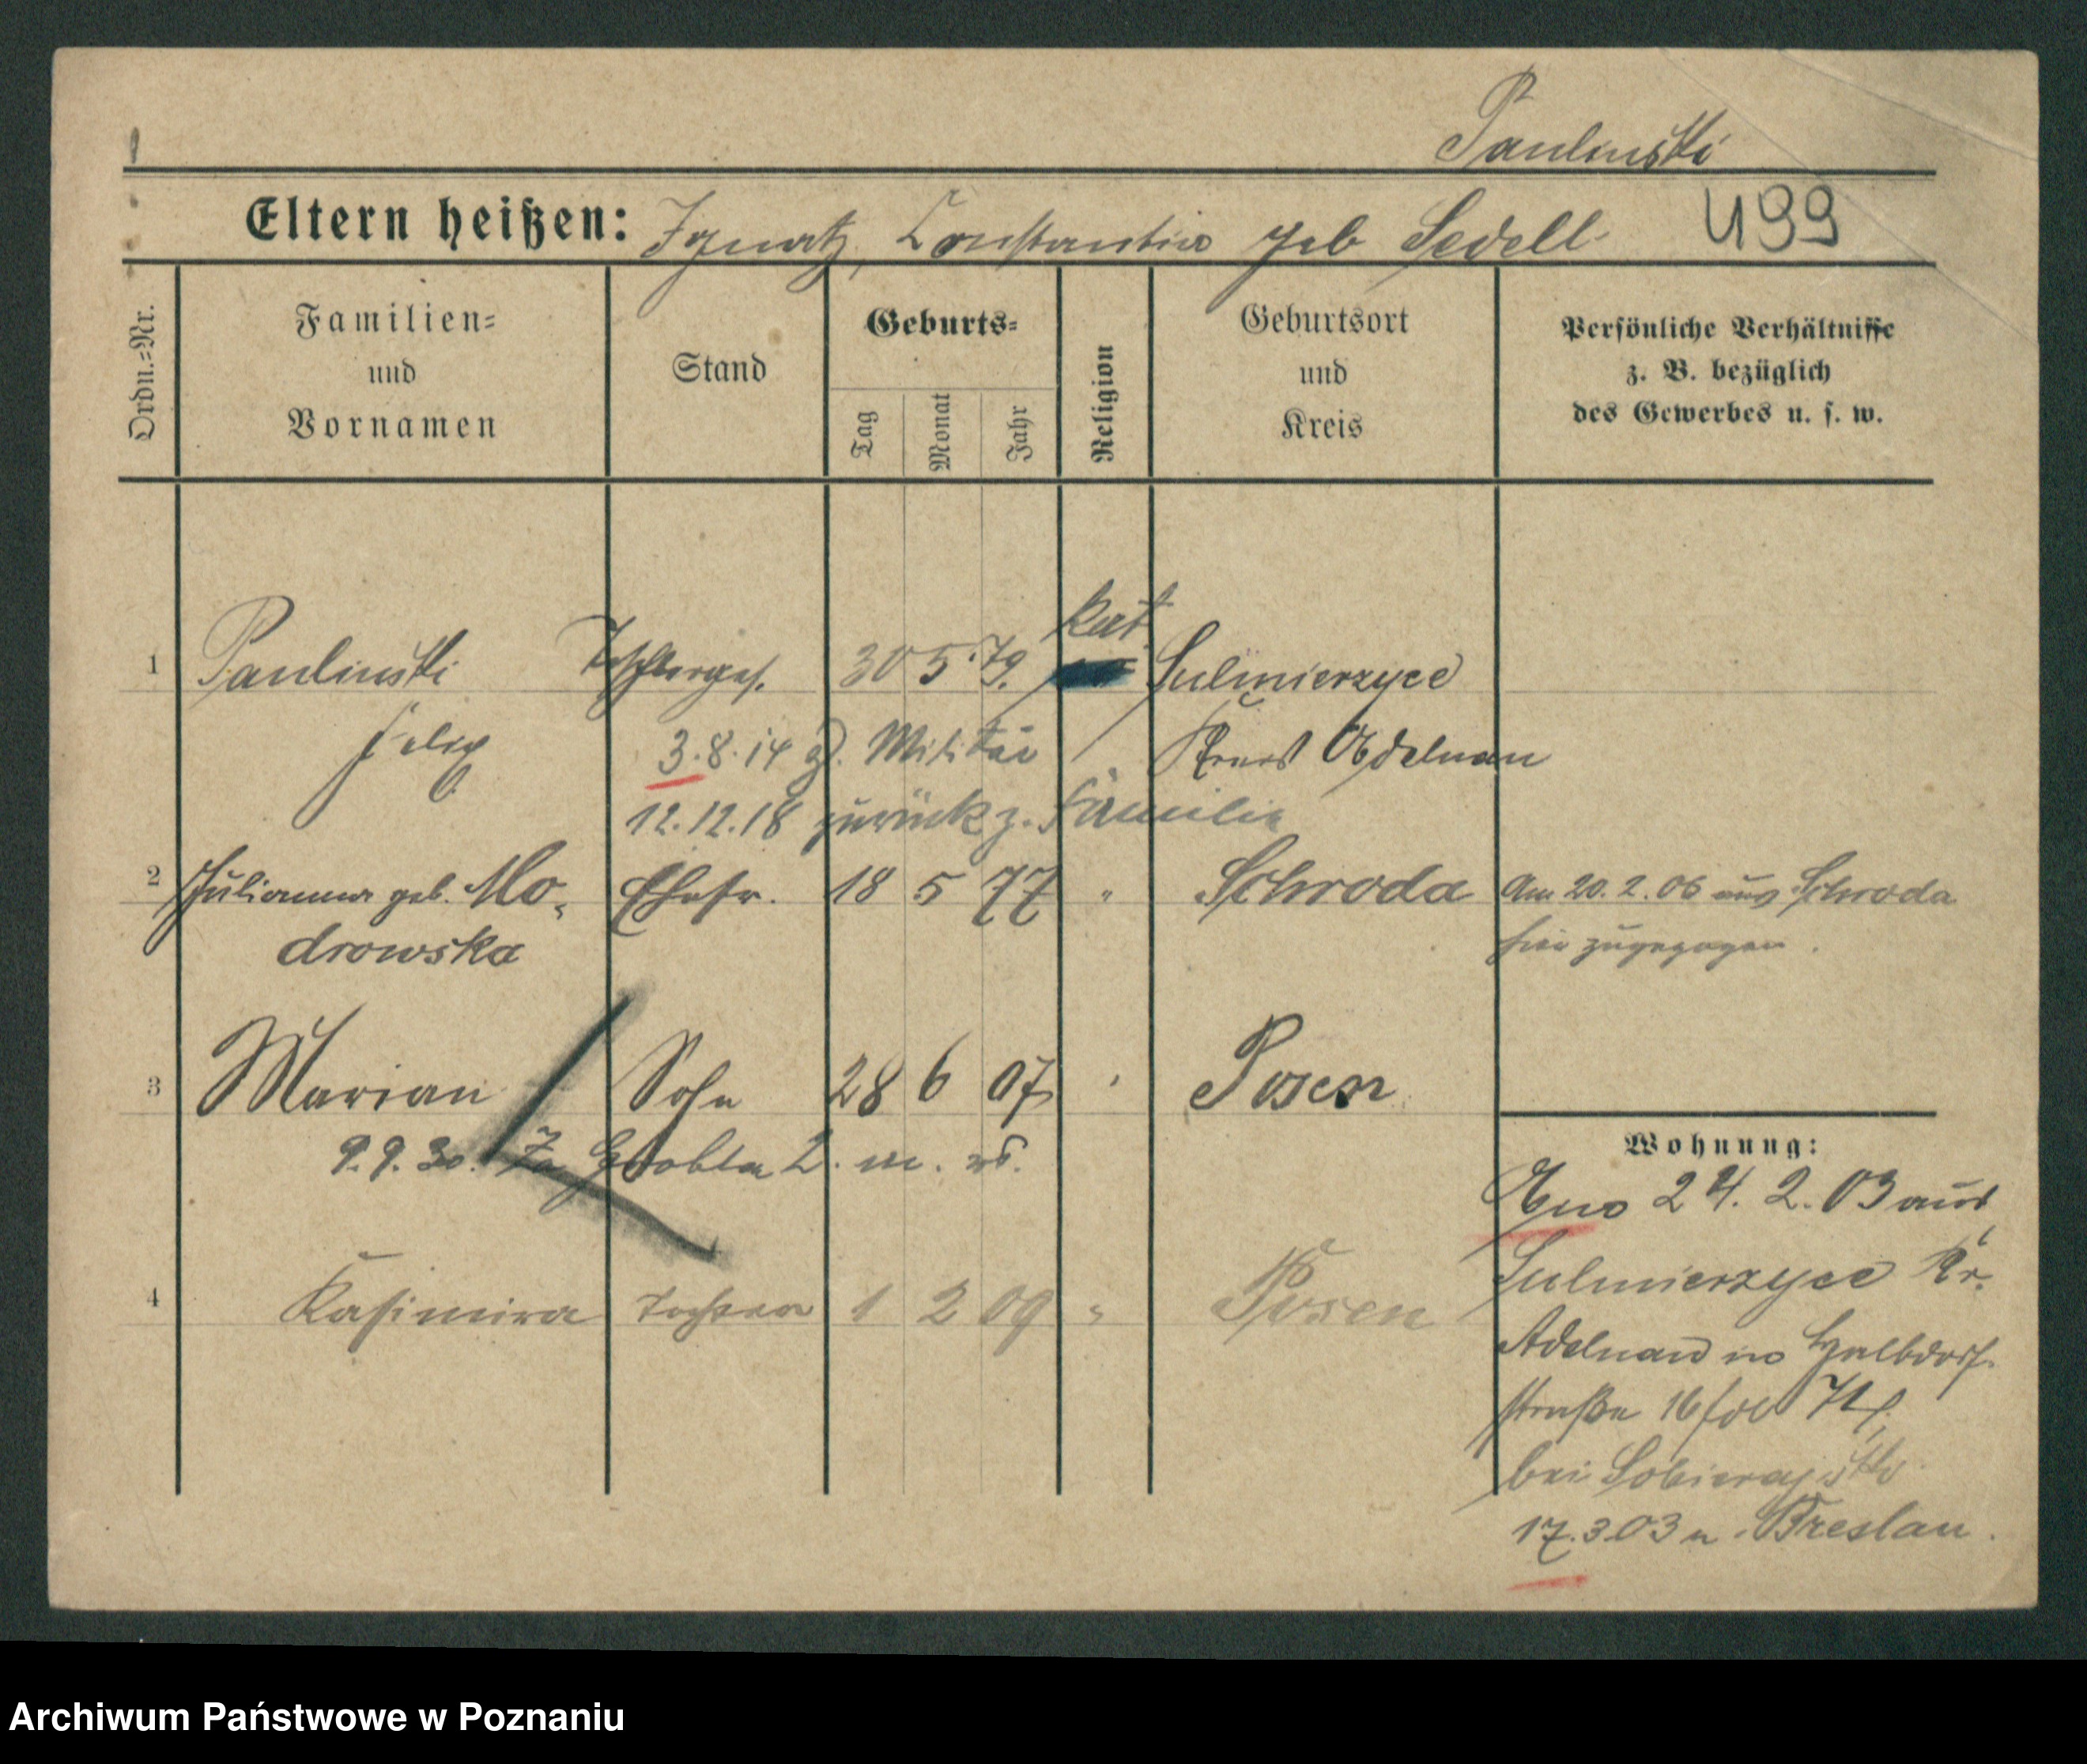 Paulinski
Eltern heißen: Ignatz, Constantia geb Sedell
499
Ordn.=Nr.
Familien=
und
Vornamen
Stand
Geburts=
Tag
Monat
Jahr
Religion
Geburtsort
und
Kreis
Persönliche Verhältnisse
z. B. bezüglich
des Gewerbes u. s. w.
kat
1 Paulinski Tischlerges. 30 5. 79. Sulmierzyce
Felix 3.8.14 z. Militär Kreis Adelnau
12.12.18 zurück z. Familie
2 Julianna geb. Mo- Ehefr. 18 5 77 " Schroda Am 20. 2. 06 aus Schroda
drowska hier zugezogen.
3 Marian Sohn 28 6 07 " Posen
9.9.30. Za Groblą 2. m.
4 Kasimira Tochter 1 2 09 " Posen
Wohnung:
24. 2. 03 aus
Sulmierzyce Kr.
Adelnau Halbdorf-
straße 16
bei Sobierajski
17.3.03 n. Breslau.
Archiwum Państwowe w Poznaniu